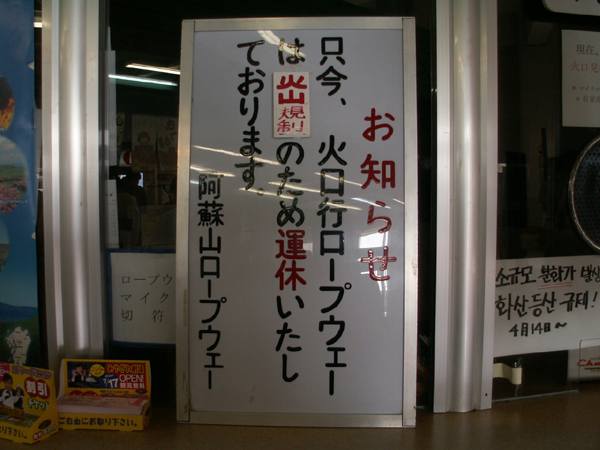 お知らせ
只今、火口行ロープウェー
は山規制のため運休いたし
ております。
阿蘇山ロープウェー
ロープウ
マイク
切符
現在、
火口見
소규모 분화가 발생
화산등산 규제!
4月14日~
割引
OPEN!
ご自由にお取り下さい。